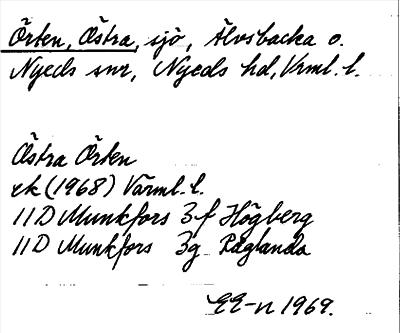 Örten, Östra, sjö, Älvsbacka o.
Nyeds snr, Nyeds hd, Vrml. l.
Östra Örten
ek (1968) Värml. l.
11D Munkfors 3f Högberg
11D Munkfors 3g Råglanda
EE-n 1969.